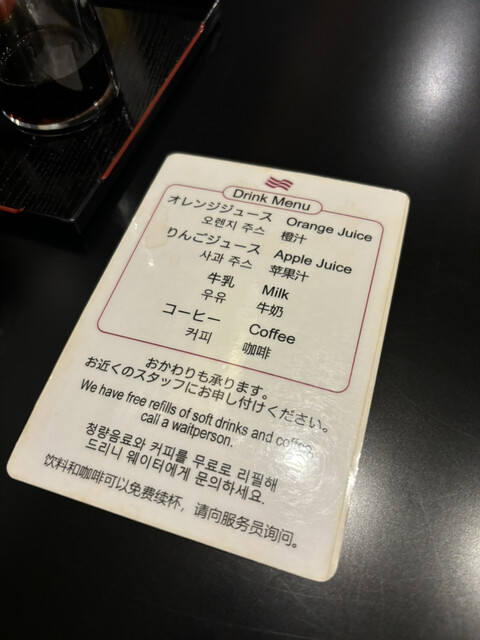 Drink Menu
オレンジジュース Orange Juice
오렌지 주스 橙汁
りんごジュース Apple Juice
사과 주스 苹果汁
牛乳 Milk
우유 牛奶
コーヒー Coffee
커피 咖啡
おかわりも承ります。
お近くのスタッフにお申し付けください。
We have free refills of soft drinks and coffee
call a waitperson.
청량음료와 커피를 무료로 리필해
드리니 웨이터에게 문의하세요.
饮料和咖啡可以免费续杯，请向服务员询问。